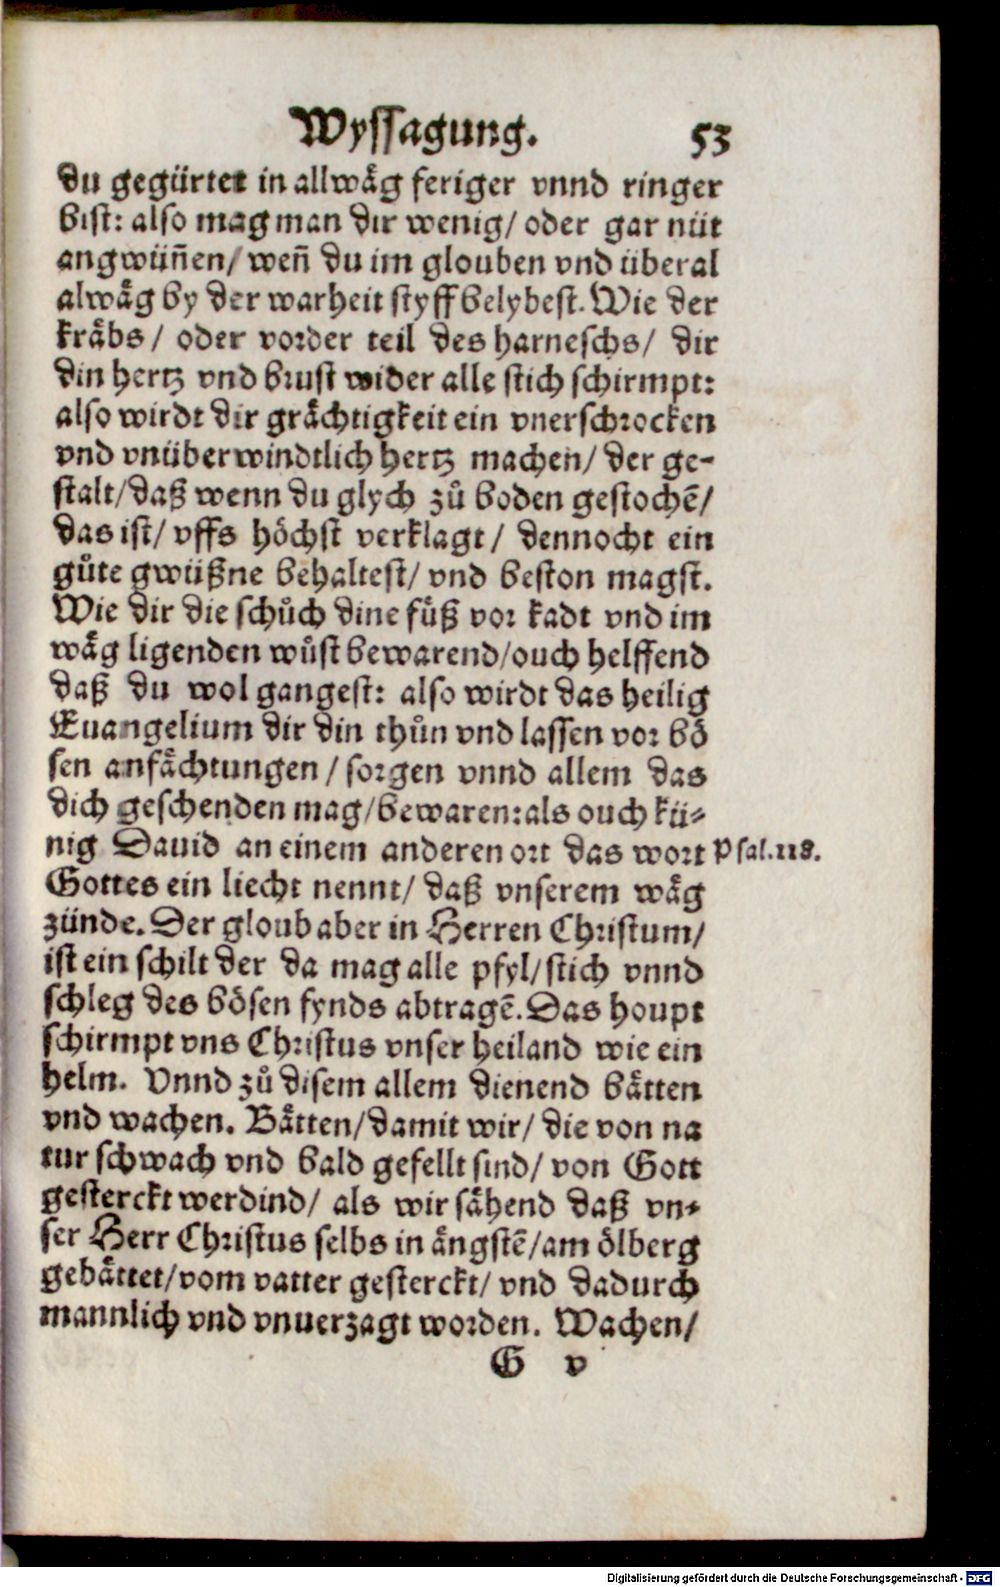 Wyssagung. 53
du gegürtet in allwäg feriger vnnd ringer
bist: also mag man dir wenig/ oder gar nüt
angwüñen/ weñ du im glouben vnd überal
alwäg by der warheit styff belybest. Wie der
kräbs/ oder vorder teil des harneschs/ dir
din hertz vnd brust wider alle stich schirmpt:
also wirdt dir grächtigkeit ein vnerschrocken
vnd vnüberwindtlich hertz machen/ der ge-
stalt/ daß wenn du glych zů boden gestochē/
das ist/ vffs höchst verklagt/ dennocht ein
gůte gwüßne behaltest/ vnd beston magst.
Wie dir die schůch dine füß vor kadt vnd im
wäg ligenden wůst bewarend/ ouch helffend
daß du wol gangest: also wirdt das heilig
Euangelium dir din thůn vnd lassen vor bö
sen anfächtungen/ sorgen vnnd allem das
dich geschenden mag/ bewaren: als ouch kü-
nig Dauid an einem anderen ort das wort Psal.118.
Gottes ein liecht nennt/ daß vnserem wäg
zünde. Der gloub aber in Herren Christum/
ist ein schilt der da mag alle pfyl/ stich vnnd
schleg des bösen fynds abtragē. Das houpt
schirmpt vns Christus vnser heiland wie ein
helm. Vnnd zů disem allem dienend bätten
vnd wachen. Bätten/ damit wir/ die von na
tur schwach vnd bald gefellt sind/ von Gott
gesterckt werdind/ als wir sähend daß vn-
ser Herr Christus selbs in ängstē/ am ölberg
gebättet/ vom vatter gesterckt/ vnd dadurch
mannlich vnd vnuerzagt worden. Wachen/
G v
Digitalisierung gefördert durch die Deutsche Forschungsgemeinschaft - DFG